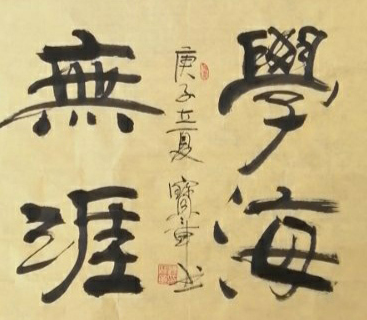 學海
無涯
庚子立夏 寶章书